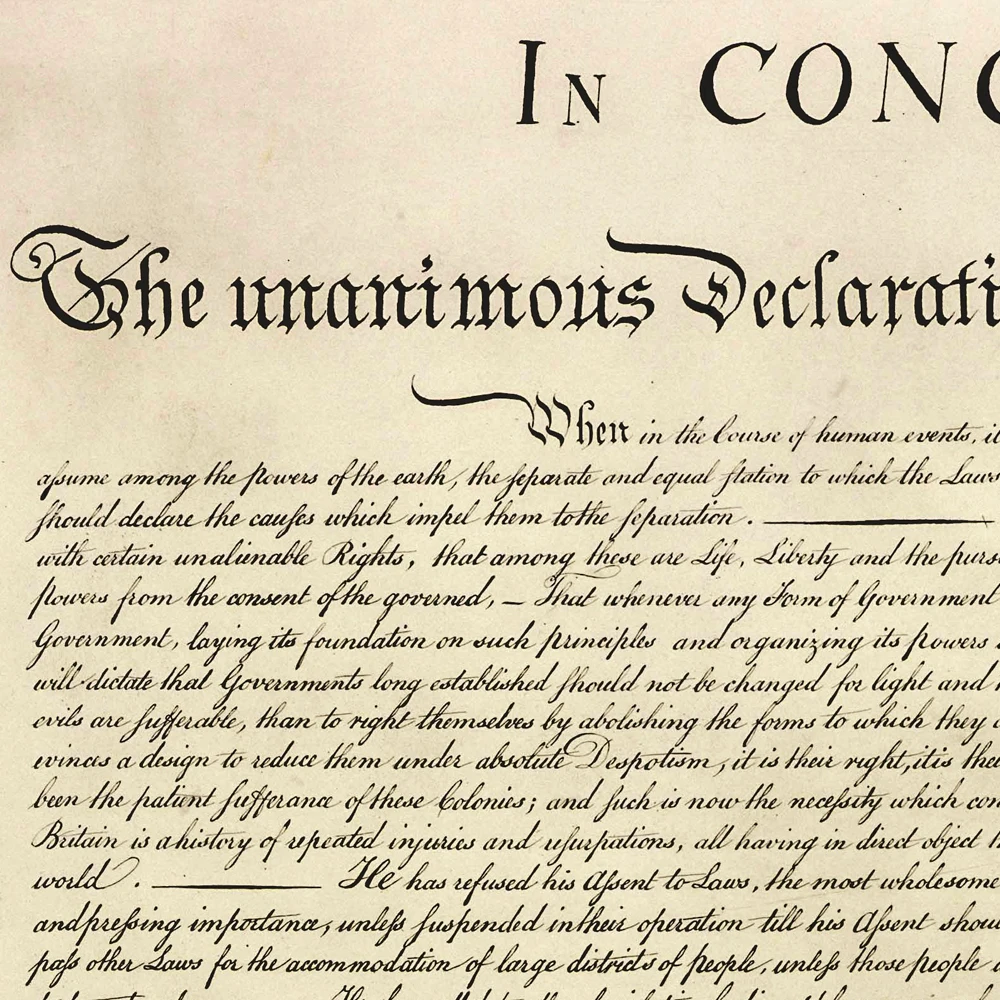 In CONG
The unanimous Declarati
When in the Course of human events, it
aſsume among the powers of the earth, the ſeparate and equal ſtation to which the Laws
ſhould declare the cauſes which impel them to the ſeparation.
with certain unalienable Rights, that among these are Life, Liberty and the purs
powers from the consent of the governed, — That whenever any Form of Government
Government, laying its foundation on such principles and organizing its powers
will dictate that Governments long established ſhould not be changed for light and
evils are ſufferable, than to right themselves by abolishing the forms to which they
evinces a design to reduce them under absolute Despotism, it is their right, it is
been the patient ſufferance of these Colonies; and ſuch is now the neceſsity which con
Britain is a history of repeated injuries and uſurpations, all having in direct object
world. He has refused his Aſsent to Laws, the most wholesome
and preſsing importance, unleſs ſuspended in their operation till his Aſsent shou
paſs other Laws for the accommodation of large districts of people, unleſs those people